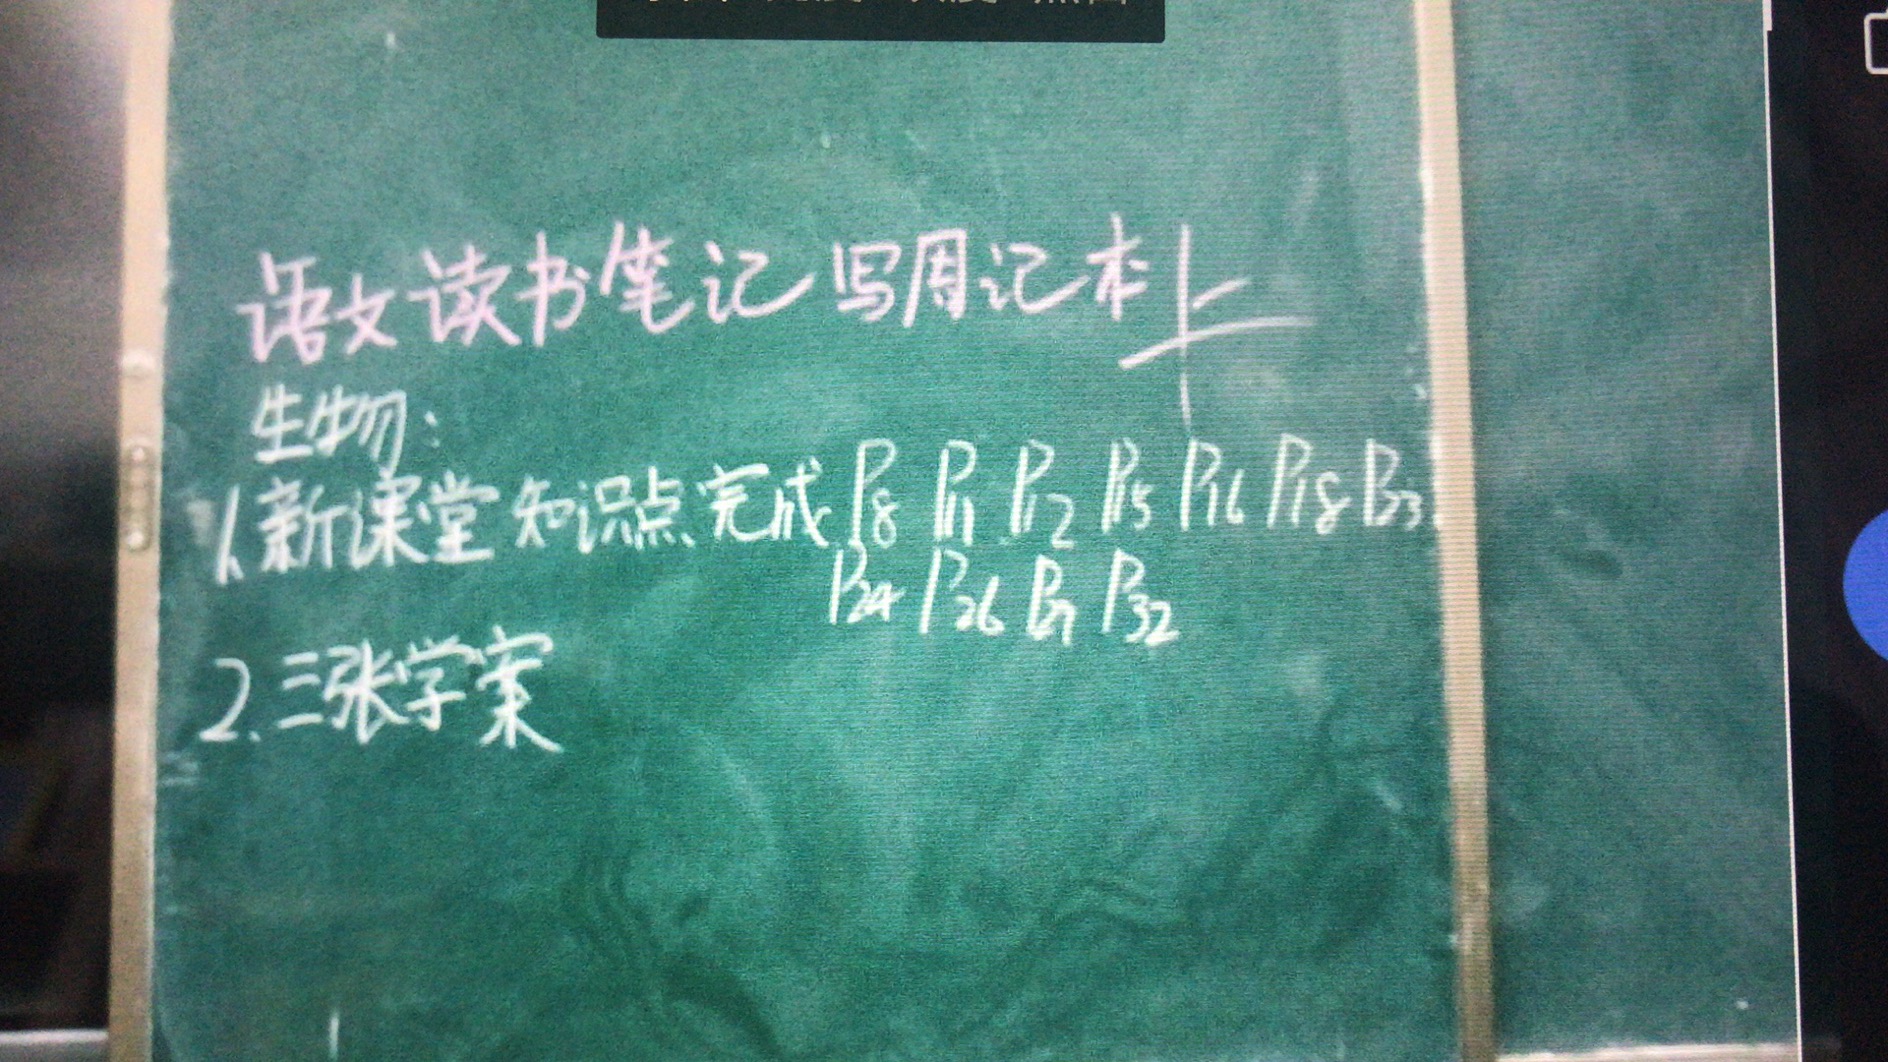 语文读书笔记写周记本上
生物:
1.新课堂知识点完成P8 P11 P12 P15 P16 P18 P23
P24 P26 P32
2.三张学案